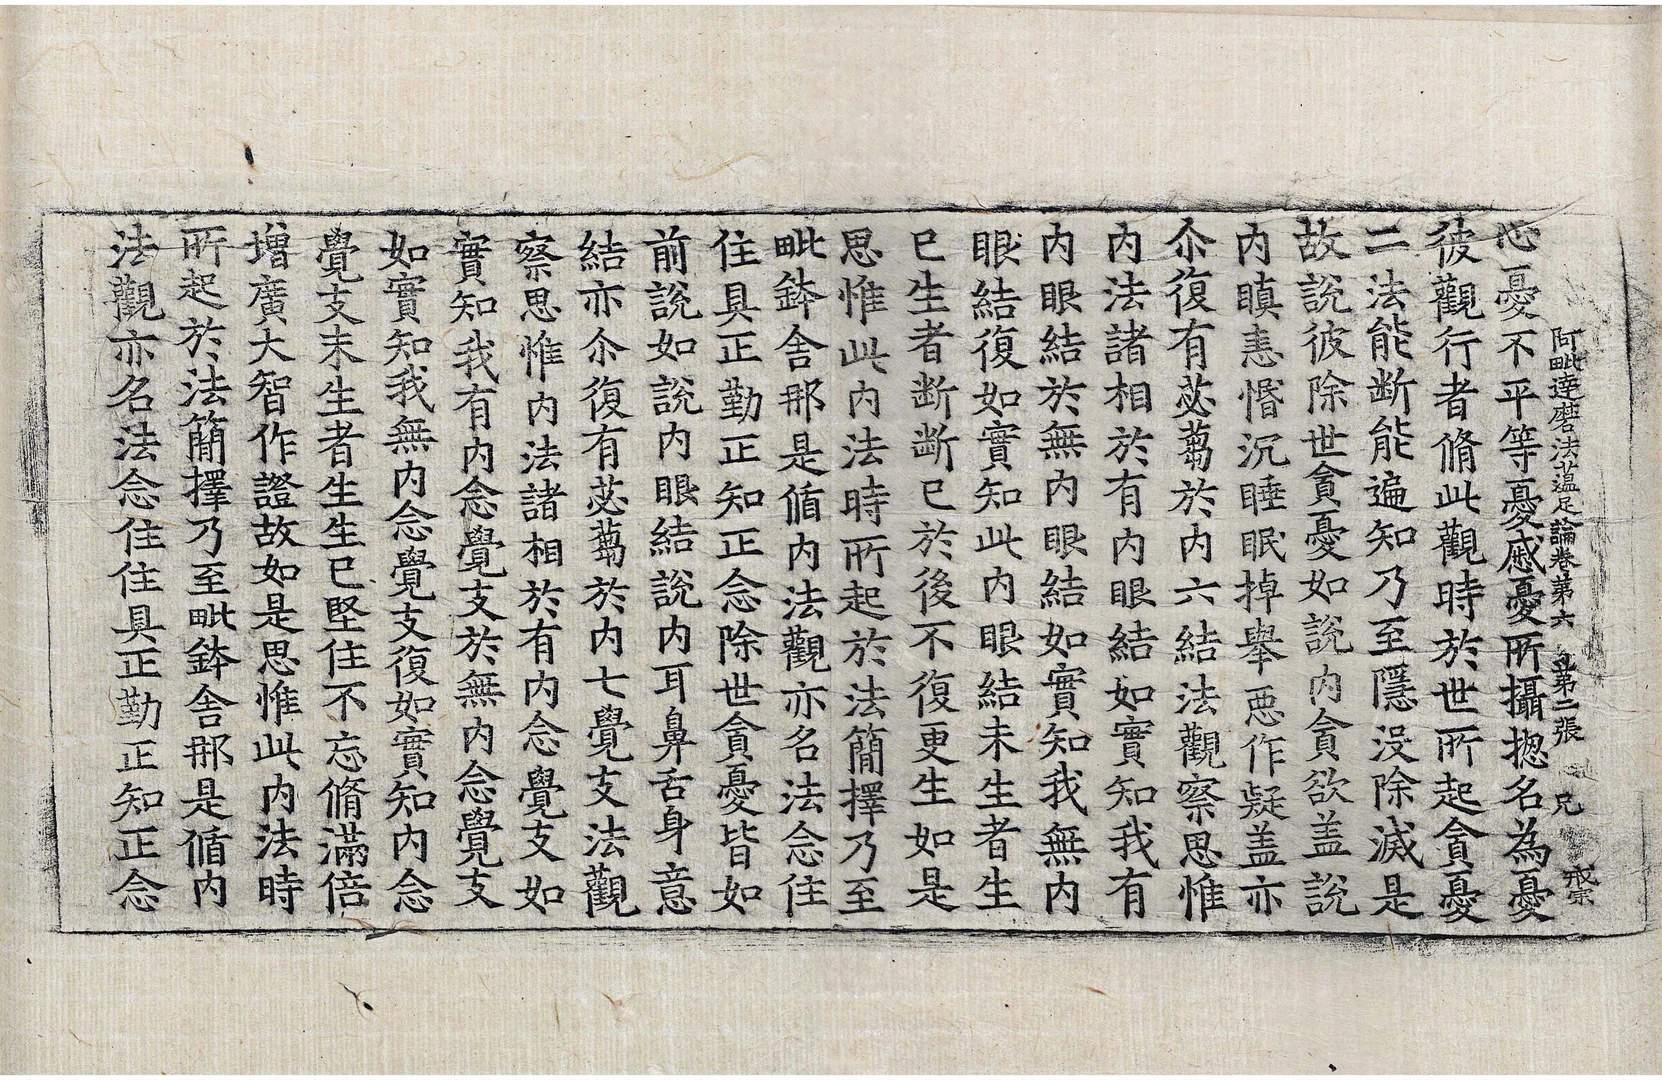 阿毗達磨法蘊足論卷第六 第二張 兄 戒宗
心憂不平等憂慼憂所攝揔名為憂
彼觀行者脩此觀時於世所起貪憂
二法能断能遍知乃至隱没除滅是
故說彼除世貪憂如說内貪欲盖說
内瞋恚惛沉睡眠掉舉惡作疑盖亦
尒復有苾蒭於内六結法觀察思惟
内法諸相於有内眼結如實知我有
内眼結於無内眼結如實知我無内
眼結復如實知此内眼結未生者生
已生者断断已於後不復更生如是
思惟此内法時所起於法簡擇乃至
毗鉢舍那是循内法觀亦名法念住
住具正勤正知正念除世貪憂皆如
前說如說内眼結說内耳鼻舌身意
結亦尒復有苾蒭於内七覺支法觀
察思惟内法諸相於有内念覺支如
實知我有内念覺支於無内念覺支
如實知我無内念覺支復如實知内念
覺支未生者生生已堅住不忘脩滿倍
增廣大智作證故如是思惟此内法時
所起於法簡擇乃至毗鉢舍那是循内
法觀亦名法念住住具正勤正知正念